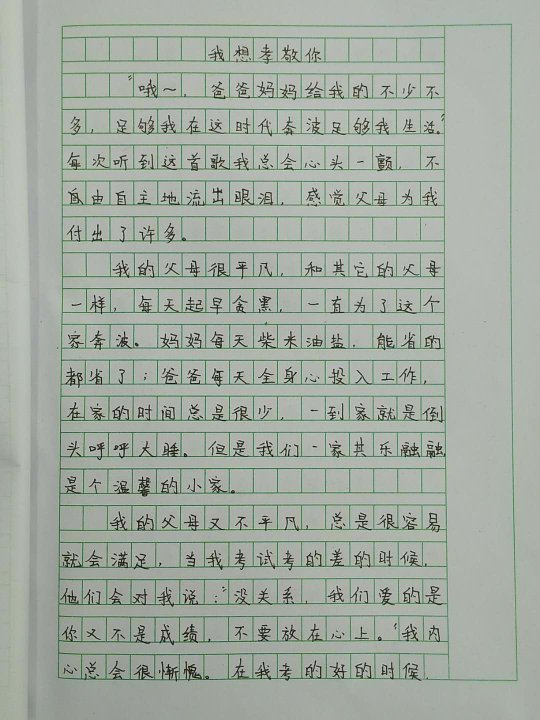 我想孝敬你
“哦～，爸爸妈妈给我的不少不
多，足够我在这时代奔波足够我生活。”
每次听到这首歌我总会心头一颤，不
自由自主地流出眼泪，感觉父母为我
付出了许多。
我的父母很平凡，和其它的父母
一样，每天起早贪黑，一直为了这个
家奔波。妈妈每天柴米油盐，能省的
都省了；爸爸每天全身心投入工作，
在家的时间总是很少，一到家就是倒
头呼呼大睡。但是我们一家其乐融融
是个温馨的小家。
我的父母又不平凡，总是很容易
就会满足，当我考试考的差的时候，
他们会对我说：“没关系，我们爱的是
你又不是成绩，不要放在心上。”我内
心总会很惭愧。在我考的好的时候，